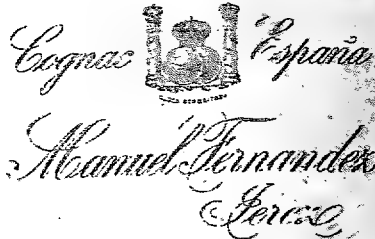 Cognac España
Manuel Fernandez
Jerez